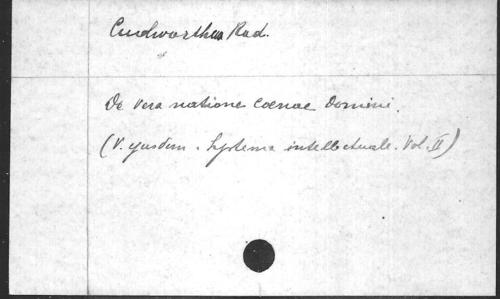 Cudworthus Rad.
De vera natione coenae Domini.
(V. ejusdem. Systema intellectuale. Vol. II)